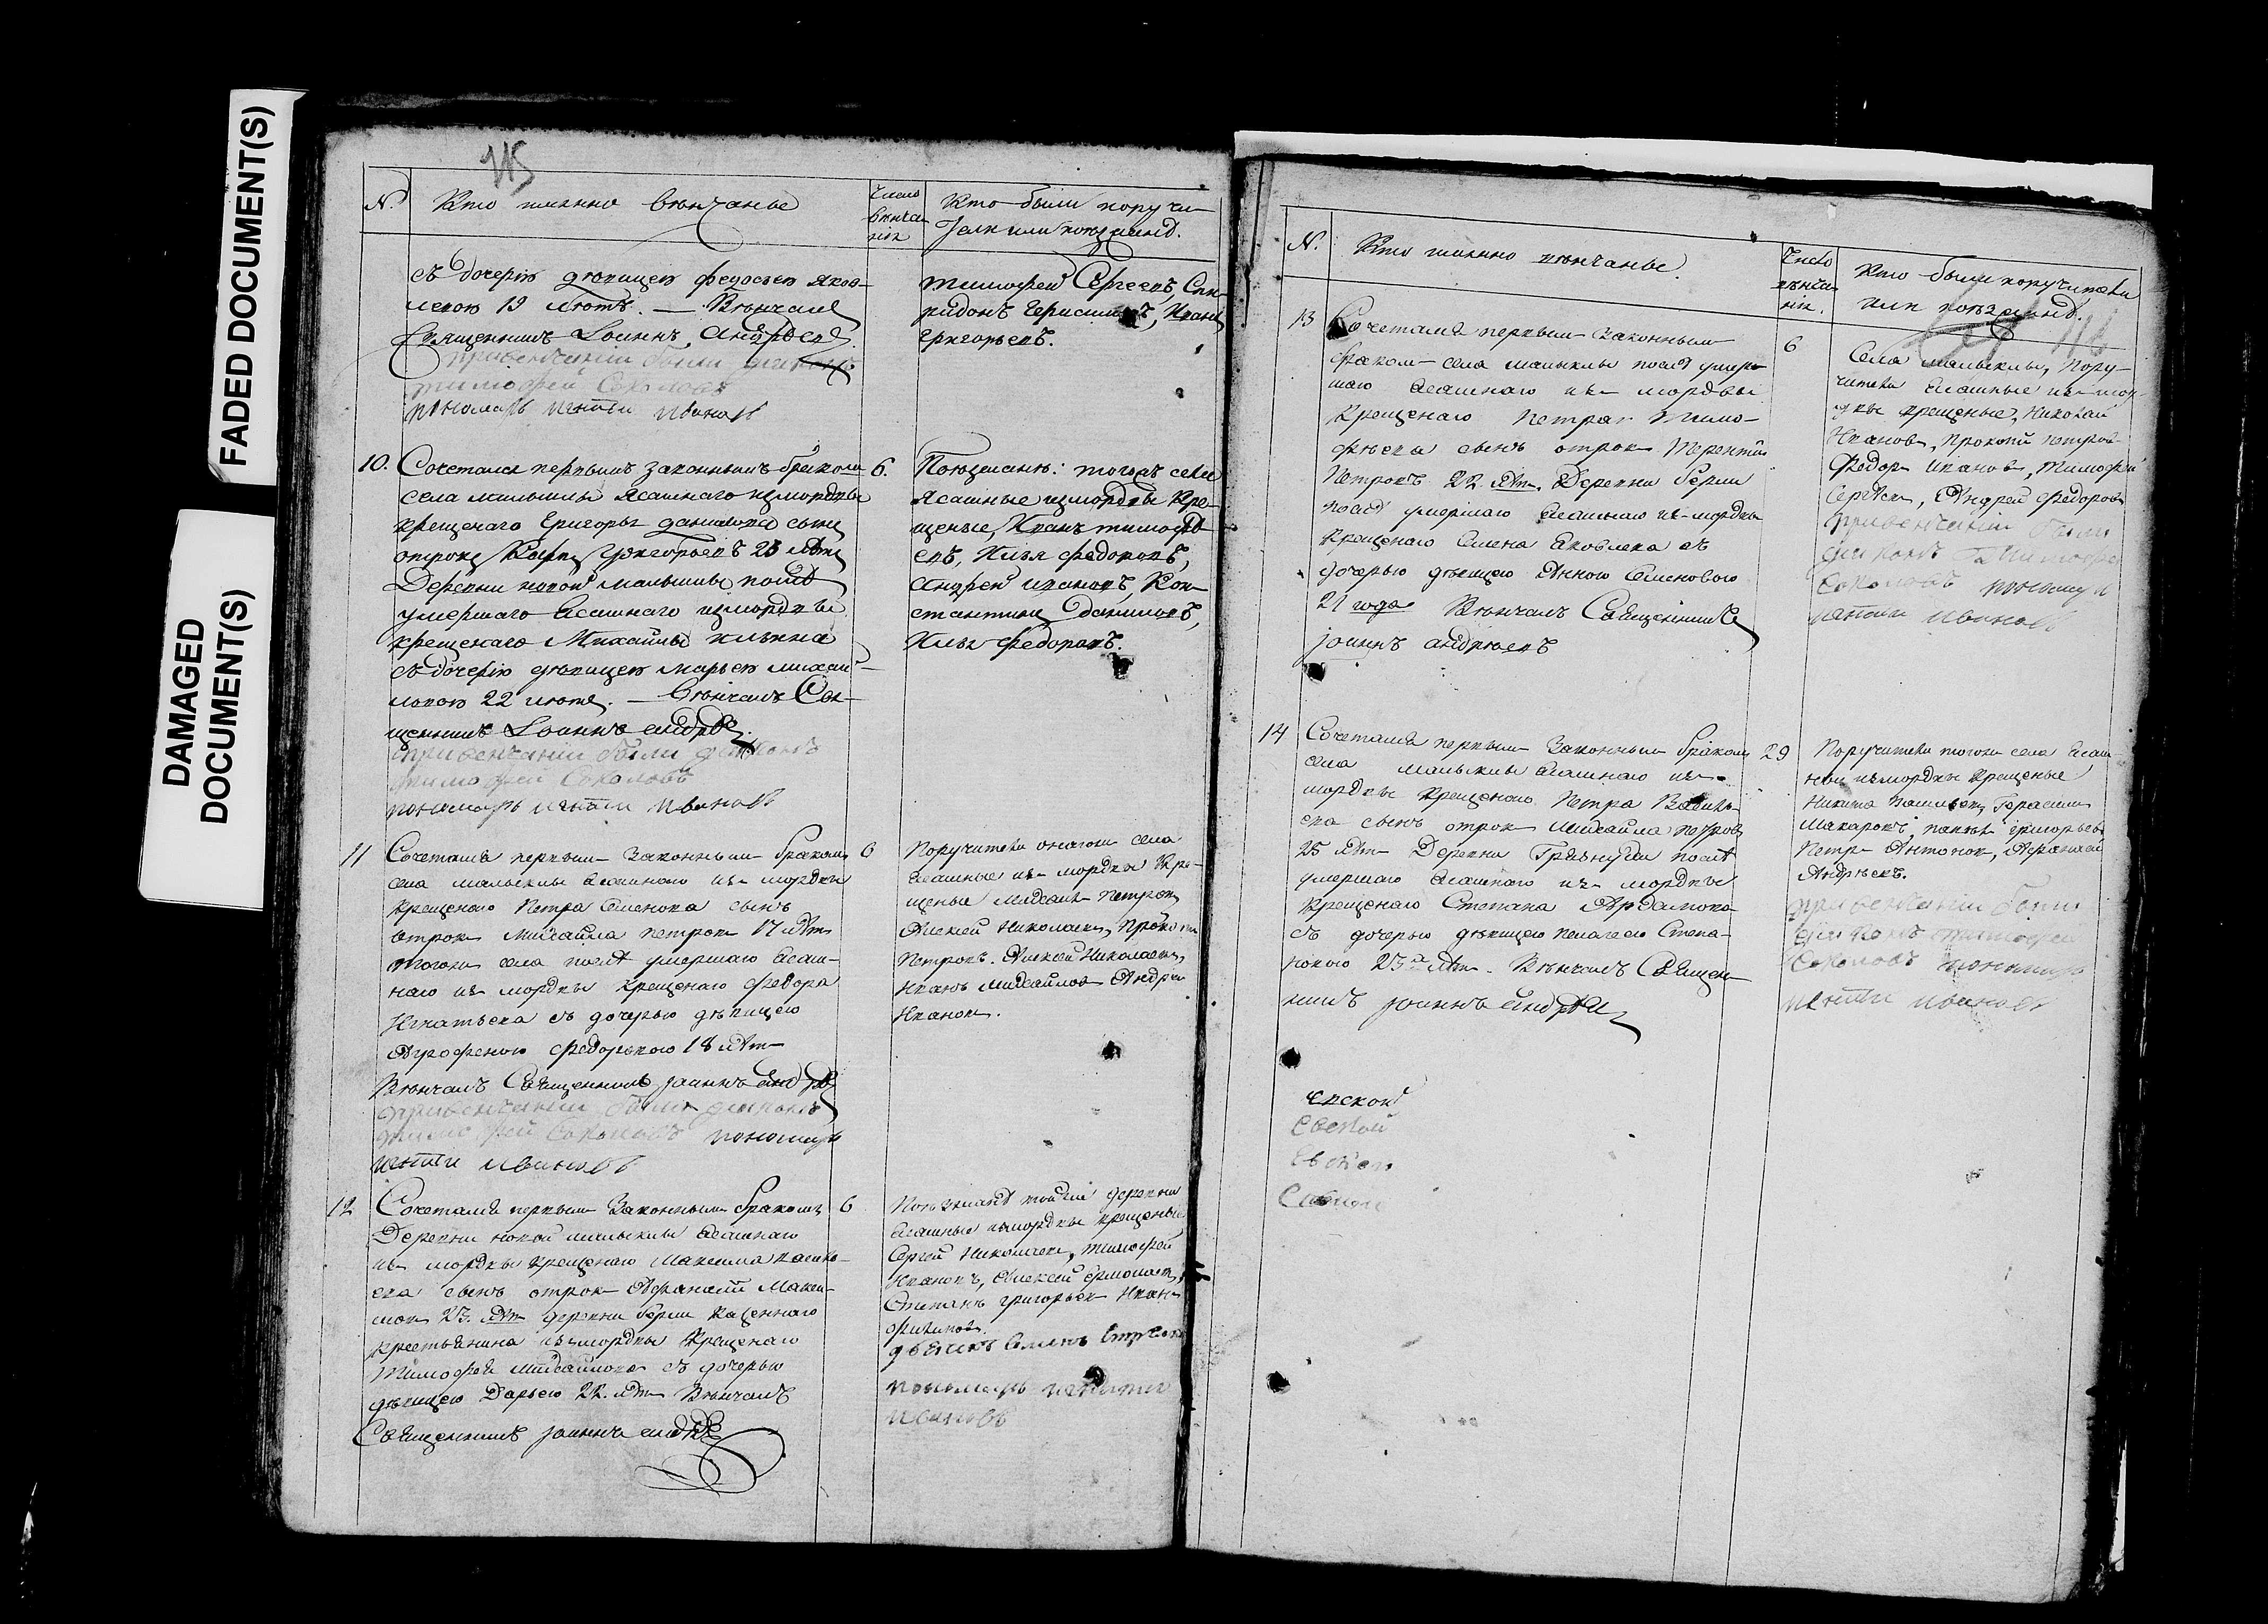 FADED DOCUMENT(S)
DAMAGED
DOCUMENT(S)
115
№ Кто имянно венчаные
Число
венча
нія
Кто были поручи
тели или поезжанѣ.
съ дочерію девицею федосьею Яков-
левою 19 летъ. — Венчалъ
Священникъ Іоаннъ Андреевъ.
привенчании были диаконъ
тимофей Соколовъ
пономарь игнати ивановъ
тимофей Сергеевъ, Спи-
ридонъ Герасимовъ, Иванъ
Григорьевъ.
10. Сочетался первымъ законнымъ бракомъ 6.
села малыклы Ясашнаго измордвы
крещенаго Григорья данилова сынъ
отрокъ Григорьевъ 23 летъ
Деревни новой малыклы после
умершаго Ясашнаго измордвы
крещенаго Михайлы ильина
съ дочерію девицею марьею михай-
ловою 22 летъ. — Венчалъ Свя-
щенникъ Іоаннъ андреевъ.
привенчании были диаконъ
тимофей Соколовъ
пономарь игнати ивановъ
Поезжанѣ: тогожъ села
Ясашные измордвы кре-
щеные, Иванъ тимофе-
евъ, Илья федоровъ,
андрей ивановъ, Кон-
стантинъ даниловъ,
Илья федоровъ.
11 Сочетался первымъ законнымъ бракомъ 6
села малыклы ясашнаго изъ мордвы
крещенаго Петра Семенова сынъ
отрокъ Михайла петровъ 17 летъ
тогожъ села после умершаго ясаш-
наго изъ мордвы крещенаго Федора
Игнатьева съ дочерью девицею
Агрофеною федоровою 18 летъ
Венчалъ Священникъ іоаннъ андреевъ
привенчании были диаконъ
тимофей Соколовъ пономарь
игнати ивановъ
Поручители онагожъ села
ясашные изъ мордвы кре-
щеные Михайла петровъ
Алексей Николаевъ, Прокопи
Петровъ. Алексей Николаевъ,
Иванъ Михайловъ Андрей
Ивановъ.
12 Сочетался первымъ законнымъ бракомъ 6
Деревни новой малыклы ясашнаго
изъ мордвы крещенаго Максима василь-
ева сынъ отрокъ Афанасей Макси-
мовъ 23. летъ деревни бѣрли казеннаго
крестьянина изъ мордвы крещенаго
Тимофея Михайлова съ дочерью
девицею Дарьею 22. летъ Венчалъ
Священникъ іоаннъ андреевъ
Поезжанѣ тойжъ деревни
ясашные измордвы крещеные
Сергей Николаевъ, тимофей
Ивановъ, Алексей Ермолаевъ,
Степанъ григорьевъ Иванъ
филиповъ.
дьячекъ Семенъ
пономарь игнати
ивановъ
116
№. Кто имянно венчаные.
Число
венча
нія.
Кто были поручители
или поезжанѣ.
13 Сочетался первымъ законнымъ 6
бракомъ села малыклы после умер-
шаго ясашнаго изъ мордвы
крещенаго Петра Тимо-
феева сынъ отрокъ Терентій
Петровъ 22. летъ. Деревни бѣрли
после умершаго ясашнаго изъ мордвы
крещенаго Семена Яковлева съ
дочерью девицею Анною Семеновою
21 года Венчалъ Священникъ
іоаннъ андреевъ
Села малыклы, пору-
чители ясашные изъ мор-
двы крещеные, Николай
Ивановъ, Прокопи петровъ
Федоръ ивановъ, Тимофей
Сергеевъ, Андрей Федоровъ
привенчании были
диаконъ Тимофей
Соколовъ пономарь
игнати ивановъ
14 Сочетался первымъ законнымъ бракомъ 29
села малыклы ясашнаго изъ
мордвы крещенаго Петра Василь-
ева сынъ отрокъ Михайла петровъ
25 летъ Деревни Грязнухи после
умершаго ясашнаго изъ мордвы
крещенаго Степана Ардамоно-
съ дочерью девицею пелагеею Степа-
новою 23 летъ. Венчалъ Священ-
никъ іоаннъ андреевъ
Поручители тогожъ села ясаш-
ные измордвы крещеные
Никита васильевъ, Герасимъ
Макаровъ, павелъ григорьевъ
Петръ Антоновъ, Афанасей
Андреевъ.
привенчании были
диаконъ тимофей
Соколовъ пономарь
игнати ивановъ